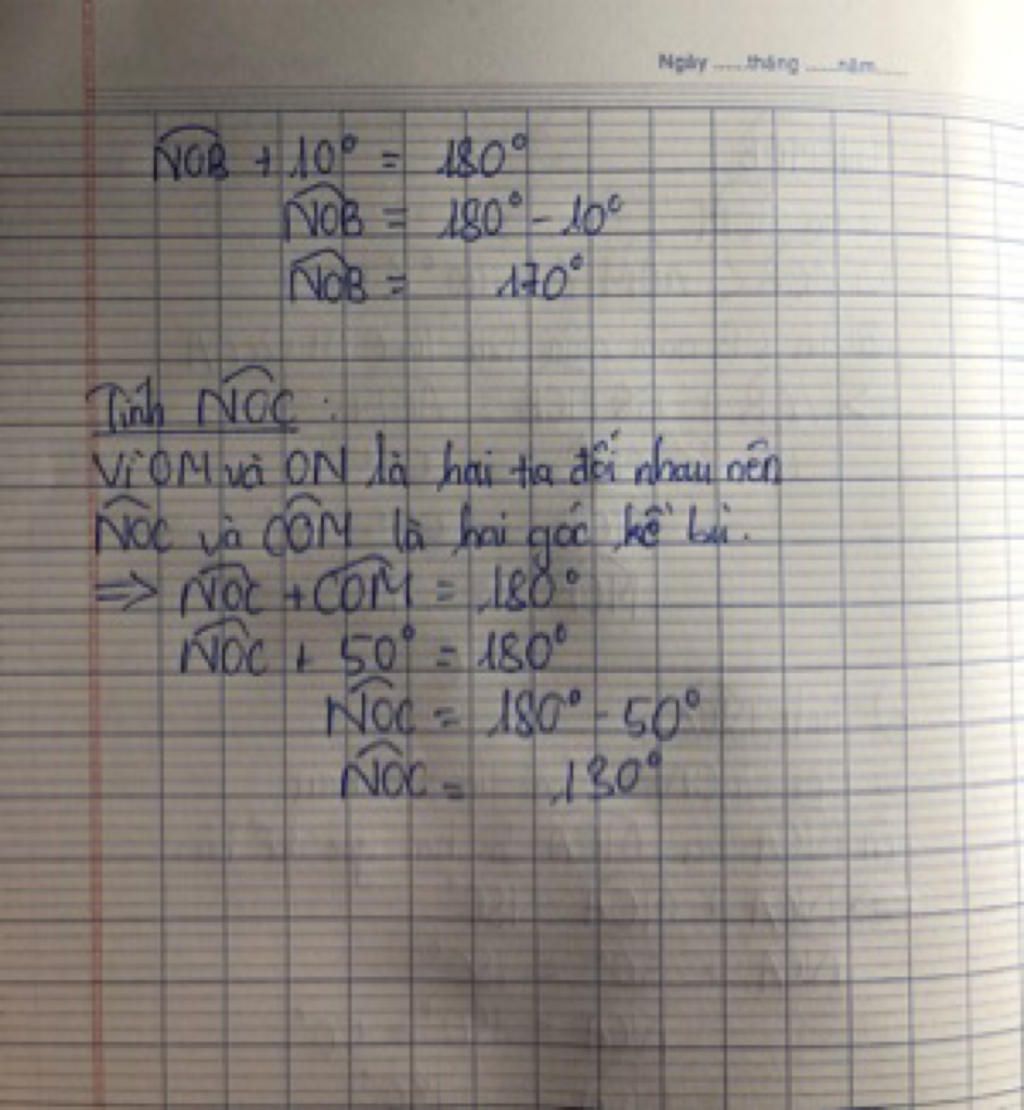 Ngày ......tháng ......năm......
$\widehat{NOB}$ + 10° = 180°
$\widehat{NOB}$ = 180° - 10°
$\widehat{NOB}$ = 170°
Tính $\widehat{NOC}$ :
Vì OM và ON là hai tia đối nhau nên
$\widehat{NOC}$ và $\widehat{COM}$ là hai góc kề bù.
=> $\widehat{NOC}$ + $\widehat{COM}$ = 180°
$\widehat{NOC}$ + 50° = 180°
$\widehat{NOC}$ = 180° - 50°
$\widehat{NOC}$ = 130°